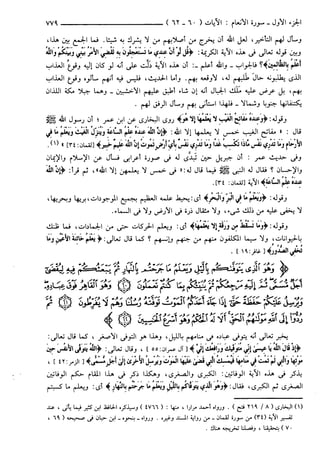 الجزء الأول - سورة الأنعام : الآيات (٦٠ - ٦٢) ٧٧٩
وسأل لهم التأخير، لعل الله أن يخرج من أصلابهم من لا يشرك به شيئا. فما الجمع بين هذا،
وبين قوله تعالى في هذه الآية الكريمة: ﴿قُل لَّوْ أَنَّ عِندِي مَا تَسْتَعْجِلُونَ بِهِ لَقُضِيَ الْأَمْرُ بَيْنِي وَبَيْنَكُمْ وَاللَّهُ
أَعْلَمُ بِالظَّالِمِينَ﴾؟ فالجواب - والله أعلم -: أن هذه الآية دلت على أنه لو كان إليه وقوع العذاب
الذي يطلبونه حال طلبهم له، لأوقعه بهم. وأما الحديث، فليس فيه أنهم سألوه وقوع العذاب
بهم، بل عرض عليه ملك الجبال أنه إن شاء أطبق عليهم الأخشبين - وهما جبلا مكة اللذان
يكتنفانها جنوبا وشمالا - فلهذا استأنى بهم وسأل الرفق لهم.
وقوله: ﴿وَعِندَهُ مَفَاتِحُ الْغَيْبِ لَا يَعْلَمُهَا إِلَّا هُوَ﴾ روى البخاري عن ابن عمر؛ أن رسول الله ﷺ
قال: «مفاتيح الغيب خمس لا يعلمها إلا الله: ﴿إِنَّ اللَّهَ عِندَهُ عِلْمُ السَّاعَةِ وَيُنَزِّلُ الْغَيْثَ وَيَعْلَمُ مَا فِي
الْأَرْحَامِ وَمَا تَدْرِي نَفْسٌ مَّاذَا تَكْسِبُ غَدًا وَمَا تَدْرِي نَفْسٌ بِأَيِّ أَرْضٍ تَمُوتُ إِنَّ اللَّهَ عَلِيمٌ خَبِيرٌ﴾ (٣٤)» (١).
وفي حديث عمر: أن جبريل حين تبدى له في صورة أعرابي فسأل عن الإسلام والإيمان
والإحسان؟ فقال له النبي ﷺ فيما قال له: «خمس لا يعلمهن إلا الله»، ثم قرأ: ﴿إِنَّ اللَّهَ
عِندَهُ عِلْمُ السَّاعَةِ﴾ الآية [لقمان: ٣٤].
وقوله: ﴿وَيَعْلَمُ مَا فِي الْبَرِّ وَالْبَحْرِ﴾ أي: يحيط علمه العظيم بجميع الموجودات، بريها وبحريها،
لا يخفى عليه من ذلك شيء، ولا مثقال ذرة في الأرض ولا في السماء.
وقوله: ﴿وَمَا تَسْقُطُ مِن وَرَقَةٍ إِلَّا يَعْلَمُهَا﴾ أي: ويعلم الحركات حتى من الجمادات، فما ظنك
بالحيوانات، ولا سيما المكلفون منهم من جنهم وإنسهم؟ كما قال تعالى: ﴿يَعْلَمُ خَائِنَةَ الْأَعْيُنِ وَمَا
تُخْفِي الصُّدُورُ﴾ [غافر: ١٩].
﴿وَهُوَ الَّذِي يَتَوَفَّاكُم بِاللَّيْلِ وَيَعْلَمُ مَا جَرَحْتُم بِالنَّهَارِ ثُمَّ يَبْعَثُكُمْ فِيهِ لِيُقْضَىٰ أَجَلٌ مُّسَمًّى ثُمَّ إِلَيْهِ
مَرْجِعُكُمْ ثُمَّ يُنَبِّئُكُم بِمَا كُنتُمْ تَعْمَلُونَ وَهُوَ الْقَاهِرُ فَوْقَ عِبَادِهِ
وَيُرْسِلُ عَلَيْكُمْ حَفَظَةً حَتَّىٰ إِذَا جَاءَ أَحَدَكُمُ الْمَوْتُ تَوَفَّتْهُ رُسُلُنَا وَهُمْ لَا يُفَرِّطُونَ ثُمَّ
رُدُّوا إِلَى اللَّهِ مَوْلَاهُمُ الْحَقِّ أَلَا لَهُ الْحُكْمُ وَهُوَ أَسْرَعُ الْحَاسِبِينَ﴾
يخبر تعالى أنه يتوفى عباده في منامهم بالليل، وهذا هو التوفي الأصغر، كما قال تعالى:
﴿إِذْ قَالَ اللَّهُ يَا عِيسَىٰ إِنِّي مُتَوَفِّيكَ وَرَافِعُكَ إِلَيَّ﴾ [آل عمران: ٥٥]، وقال تعالى: ﴿اللَّهُ يَتَوَفَّى الْأَنفُسَ حِينَ
مَوْتِهَا وَالَّتِي لَمْ تَمُتْ فِي مَنَامِهَا فَيُمْسِكُ الَّتِي قَضَىٰ عَلَيْهَا الْمَوْتَ وَيُرْسِلُ الْأُخْرَىٰ إِلَىٰ أَجَلٍ مُّسَمًّى﴾ [الزمر: ٤٢]،
يذكر في هذه الآية الوفاتين: الكبرى والصغرى، وهكذا ذكر في هذا المقام حكم الوفاتين
الصغرى ثم الكبرى، فقال: ﴿وَهُوَ الَّذِي يَتَوَفَّاكُم بِاللَّيْلِ وَيَعْلَمُ مَا جَرَحْتُم بِالنَّهَارِ﴾ أي: ويعلم ما كسبتم
(١) البخاري (٨ / ٢١٩ فتح). ورواه أحمد مرارا، منها: (٤٧٦٦) وسيذكره الحافظ ابن كثير فيما يأتي، عند
تفسير الآية (٣٤) من سورة لقمان - من رواية المسند وغيره. ورواه - بنحوه - ابن حبان في صحيحه (٦٩ ،
٧٠) بتحقيقنا، وفصلنا تخريجه هناك.